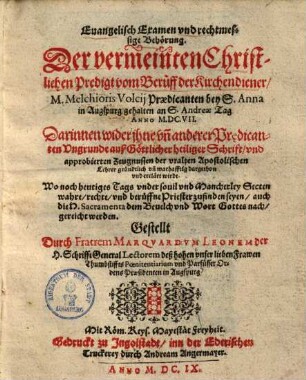 Evangelisch Examen vnd rechtmes-
sige Behörung.
Der vermeinten Christ-
lichen Predigt vom Berüff der Kirchendiener/
M. Melchioris Volcij Prædicanten bey S. Anna
in Augspurg gehalten an S. Andreæ Tag
ANNO M.DCVII.
Darinnen wider ihne vñ anderer Prædican-
ten Vngrunde auß Göttlicher heiliger Schrifft/ vnd
approbierten Zeugnussen der vralten Apostolischen
Lehrer gründtlich vñ warhafftig dargethon
vnd erklärt wirdt.
Wo noch heutiges Tags vnder souil vnd Mancherley Secten
wahre/ rechte/ vnd berüffne Priester zufinden seyen/ auch
die H. Sacramenta dem Beuelch vnd Wort Gottes nach/
gereicht werden.
Gestellt
Durch Fratrem MARQVARDVM LEONEM der
H. Schrifft General Lectorem deß hohen vnser lieben Frawen
Thumbstiffts Pœnitentiarium vnd Parfüsser Or-
dens Præsidenten in Augspurg.
Mit Röm. Keys. Mayestät Freyheit.
Gedruckt zu Ingolstadt/ inn der Ederischen
Truckerey durch Andream Angermayer.
ANNO M. DC. IX.